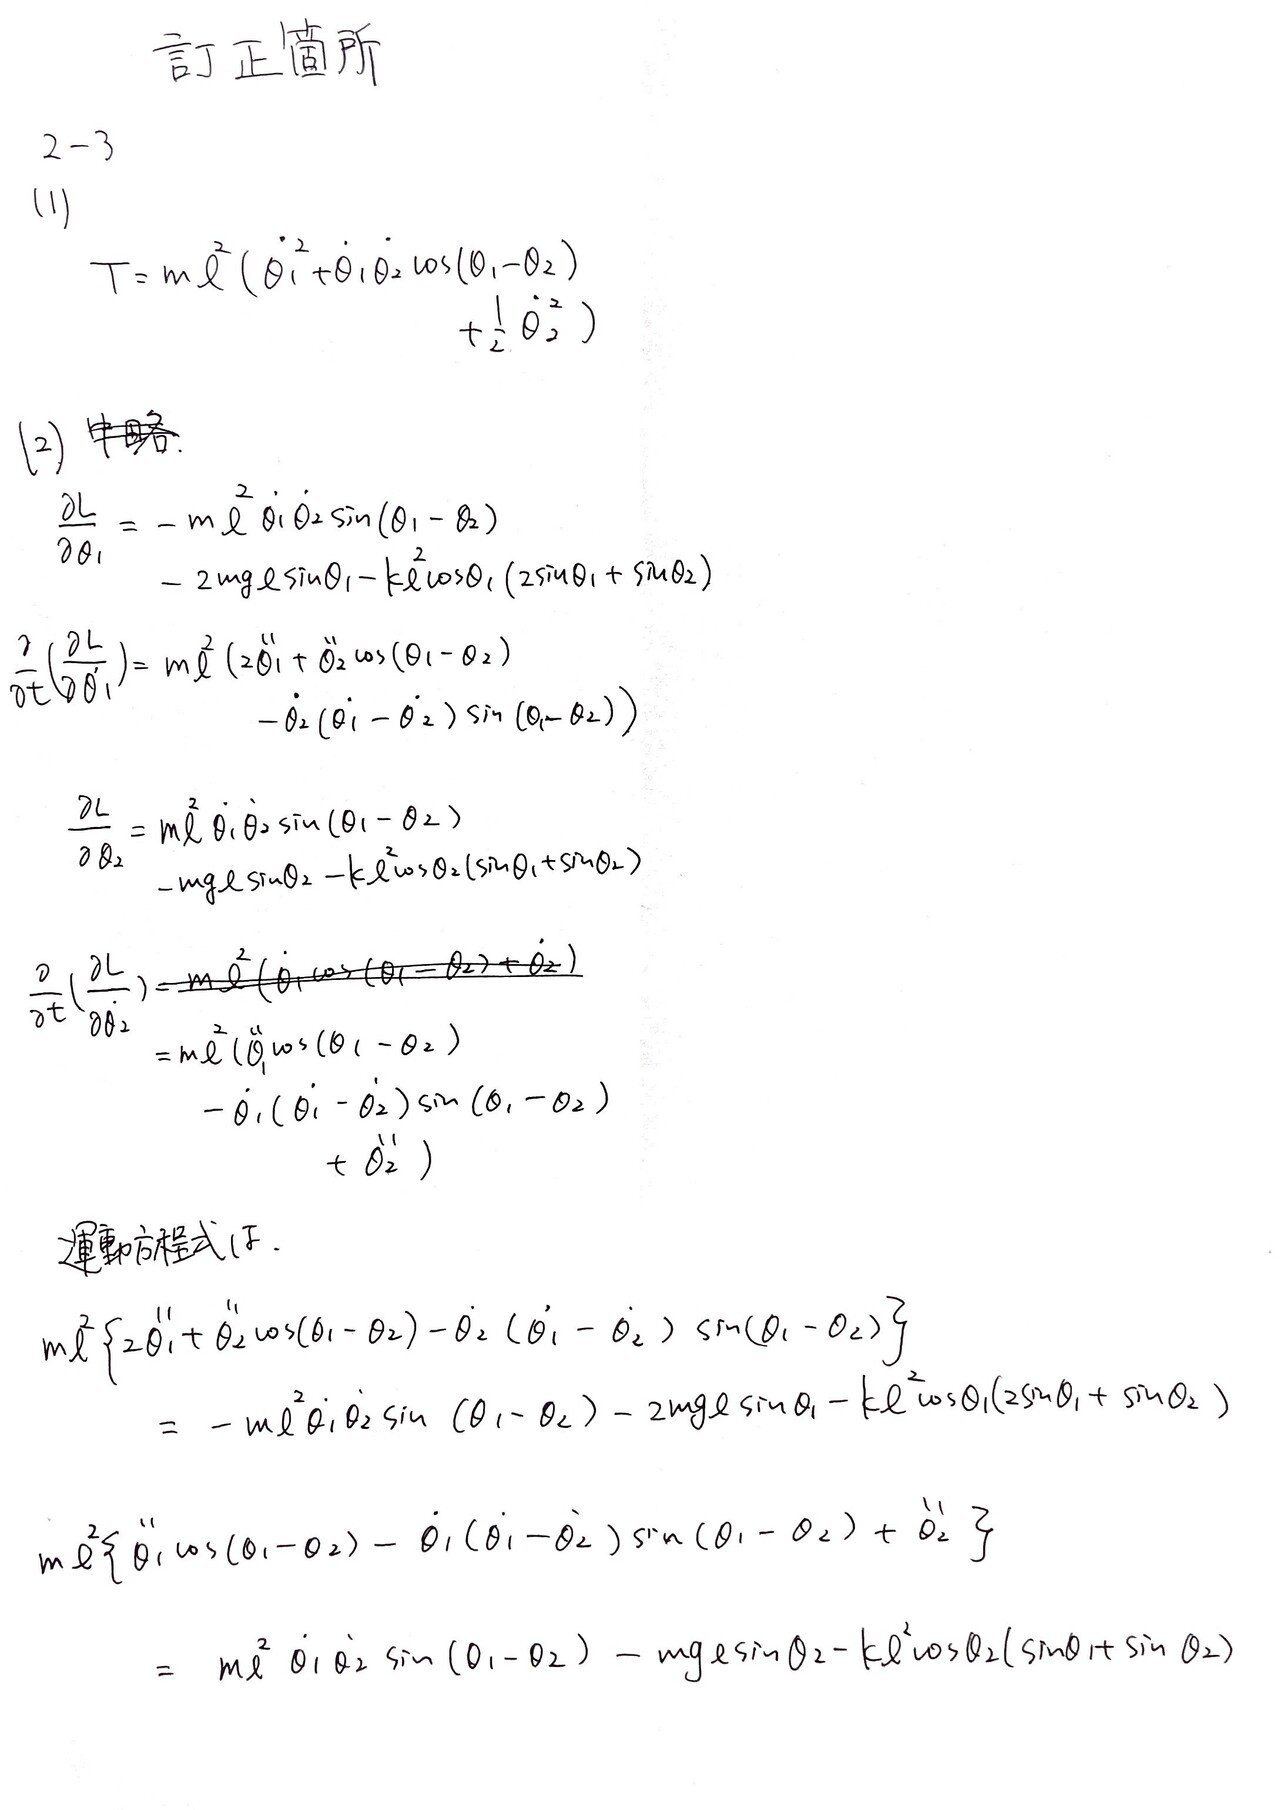 訂正箇所
2-3
(1)
T = mℓ²(θ̇₁² + θ̇₁θ̇₂cos(θ₁-θ₂)
+ 1/2 θ̇₂²)
(2) 中略.
∂L/∂θ₁ = - mℓ²θ̇₁θ̇₂sin(θ₁-θ₂)
- 2mgℓsinθ₁ - kℓ²cosθ₁(2sinθ₁ + sinθ₂)
∂/∂t(∂L/∂θ̇₁) = mℓ²(2θ̈₁ + θ̈₂cos(θ₁-θ₂)
- θ̇₂(θ̇₁ - θ̇₂)sin(θ₁-θ₂))
∂L/∂θ₂ = mℓ²θ̇₁θ̇₂sin(θ₁-θ₂)
- mgℓsinθ₂ - kℓ²cosθ₂(sinθ₁ + sinθ₂)
∂/∂t(∂L/∂θ̇₂) = mℓ²(θ̇₁cos(θ₁-θ₂) + θ̇₂)
= mℓ²(θ̈₁cos(θ₁-θ₂)
- θ̇₁(θ̇₁ - θ̇₂)sin(θ₁-θ₂)
+ θ̈₂)
運動方程式は.
mℓ²{2θ̈₁ + θ̈₂cos(θ₁-θ₂) - θ̇₂(θ̇₁ - θ̇₂)sin(θ₁-θ₂)}
= - mℓ²θ̇₁θ̇₂sin(θ₁-θ₂) - 2mgℓsinθ₁ - kℓ²cosθ₁(2sinθ₁ + sinθ₂)
mℓ²{θ̈₁cos(θ₁-θ₂) - θ̇₁(θ̇₁ - θ̇₂)sin(θ₁-θ₂) + θ̈₂}
= mℓ²θ̇₁θ̇₂sin(θ₁-θ₂) - mgℓsinθ₂ - kℓ²cosθ₂(sinθ₁ + sinθ₂)